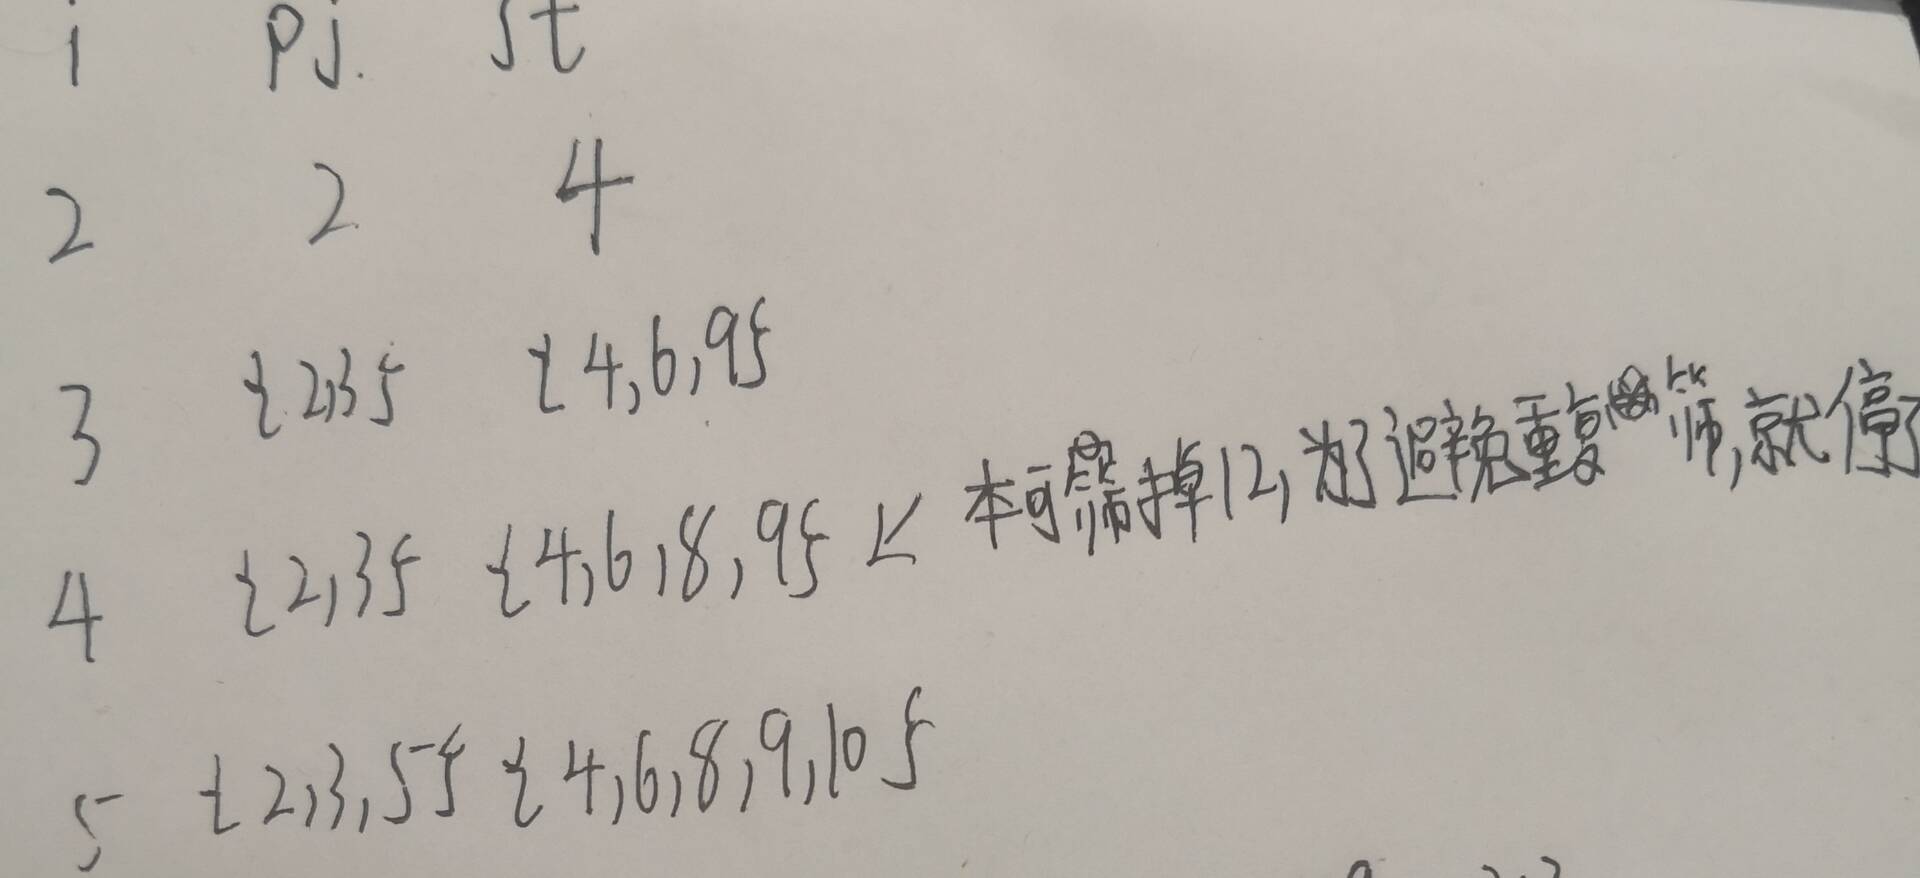 i pj. st
2 2 4
3 {2,3} {4,6,9}
4 {2,3} {4,6,8,9} ↙ 本可筛掉12,为了避免重复筛,就停了
5 {2,3,5} {4,6,8,9,10}